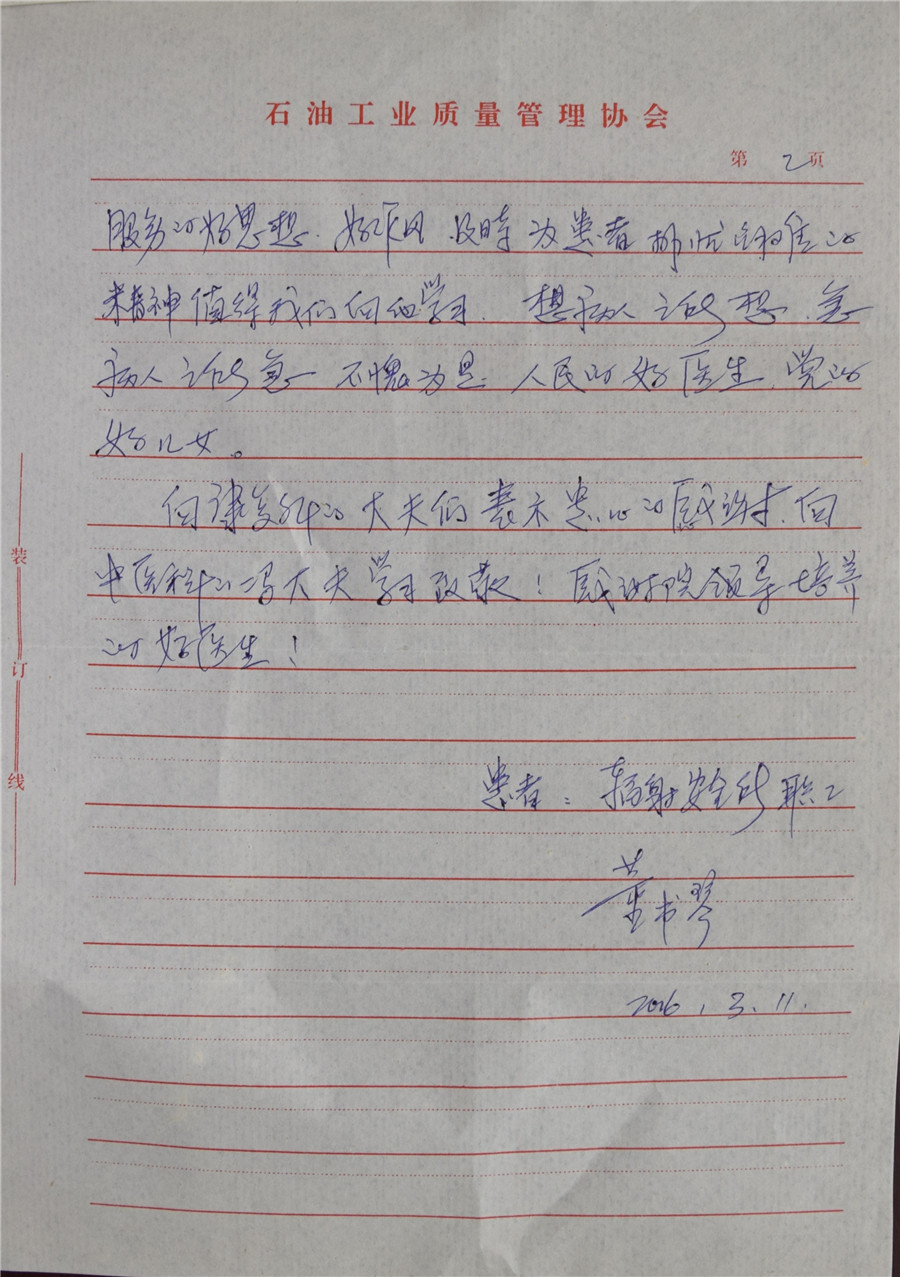 石油工业质量管理协会
第 2 页
服务的好思想、好作风 及时为患者排忧解难的
精神值得我们向他学习。想病人之所想、急
病人之所急 不愧为是 人民的好医生、党的
好儿女。
向康复科的大夫们表示衷心的感谢、向
中医科的冯大夫学习致敬！感谢院领导培养
的好医生！
患者：辐射安全所职工
董书琴
2016.3.11.
装
订
线